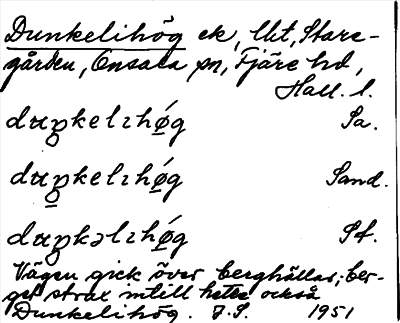 Dunkelihög ek, Utt, Stare-
gården, Onsala sn, Fjäre hd,
Hall. l.
duŋkelıhǿg Sa.
duŋkelıhǿg Sand.
duŋkəlıhǿg Sf.
Vägen gick över berghällar; ber-
get strax intill heter också
Dunkelihög. F.S. 1951